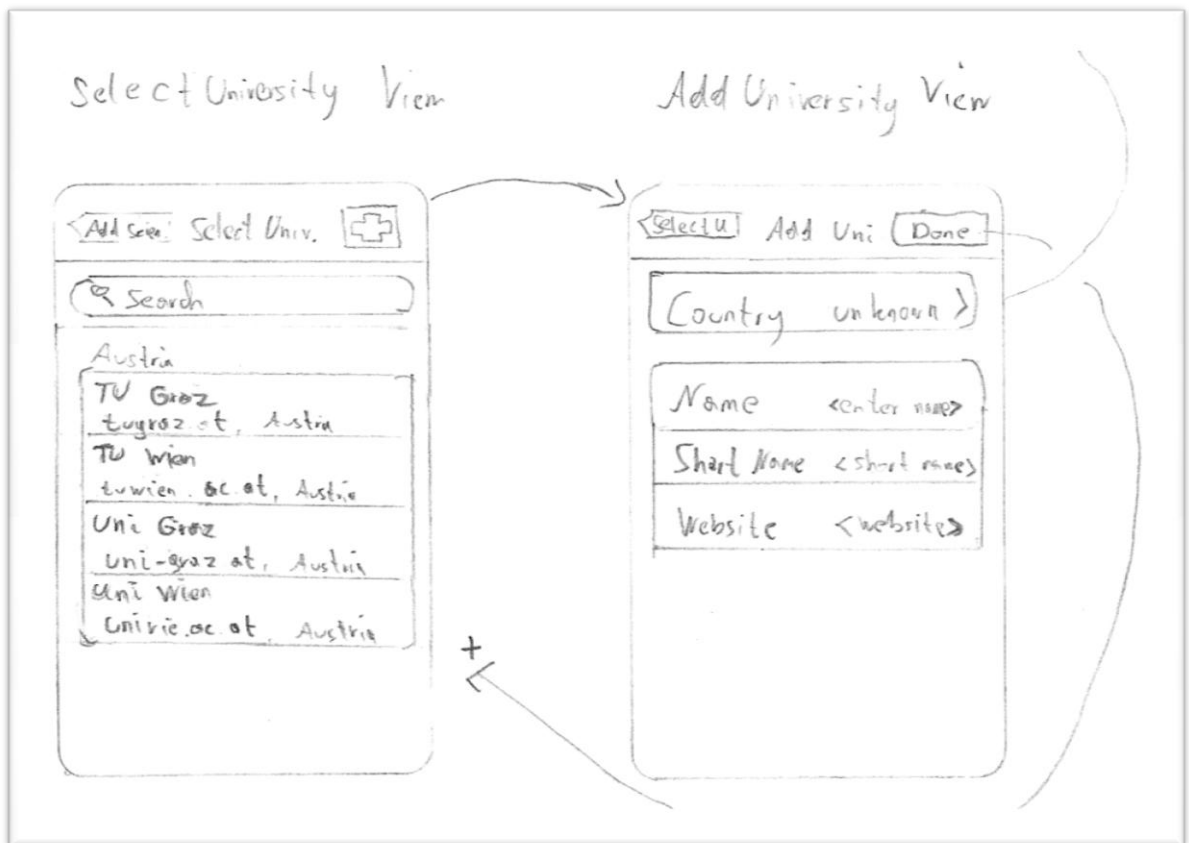 Select University View
Add University View
Add Scien. Select Univ.
Search
Austria
TU Graz
tugraz.at, Austria
TU Wien
tuwien.ac.at, Austria
Uni Graz
uni-graz.at, Austria
Uni Wien
univie.ac.at, Austria
+
Select U Add Uni Done
Country unknown >
Name <enter name>
Short Name <short name>
Website <website>